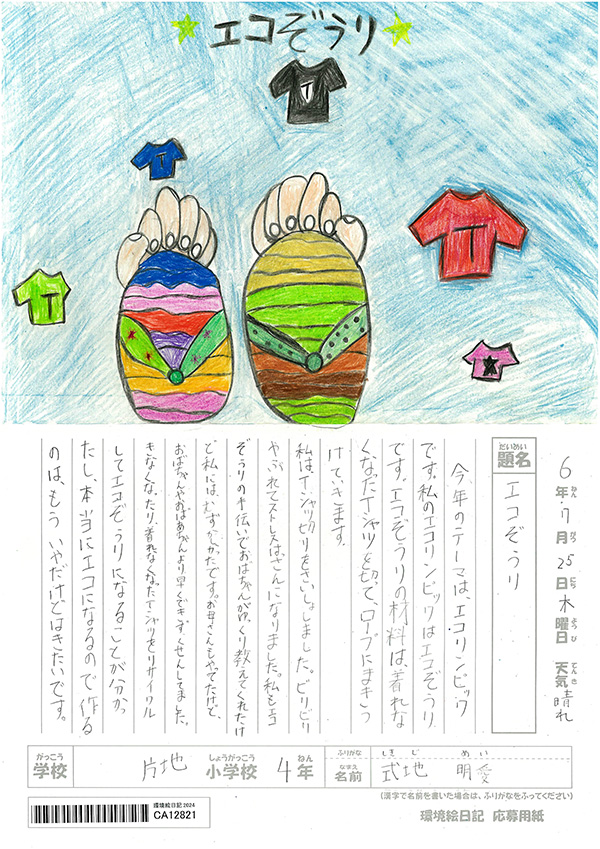 エコぞうり
T
T
T
T
6年7月25日木曜日 天気晴れ
ねん がつ にち ようび てんき
だいめい
題名 エコぞうり
今年のテーマは、エコリンピック
です。私のエコリンピックはエコぞうり
です。エコぞうりの材料は、着れな
くなったTシャツを切って、ロープにまきつ
けていきます。
私は、Tシャツ切りをさいしょしました。ビリビリ
やぶれてストレスはっさんになりました。私もエコ
ぞうりの手伝いでおばちゃんがゆっくり教えてくれたけ
ど私には、むずかしかったです。お母さんもやってたけど、
おばちゃんやおばあちゃんより早くできず、くせんしてました。
きなくなったり、着れなくなったTシャツをリサイクル
してエコぞうりになることが分かっ
たし、本当にエコになるので作る
のは、もういやだけどはきたいです。
がっこう しょうがっこう ねん ふりがな しきじ めい
学校 片地 小学校 4年 なまえ 名前 式地 明愛
(漢字で名前を書いた場合は、ふりがなをふってください)
環境絵日記2024
CA12821
環境絵日記 応募用紙